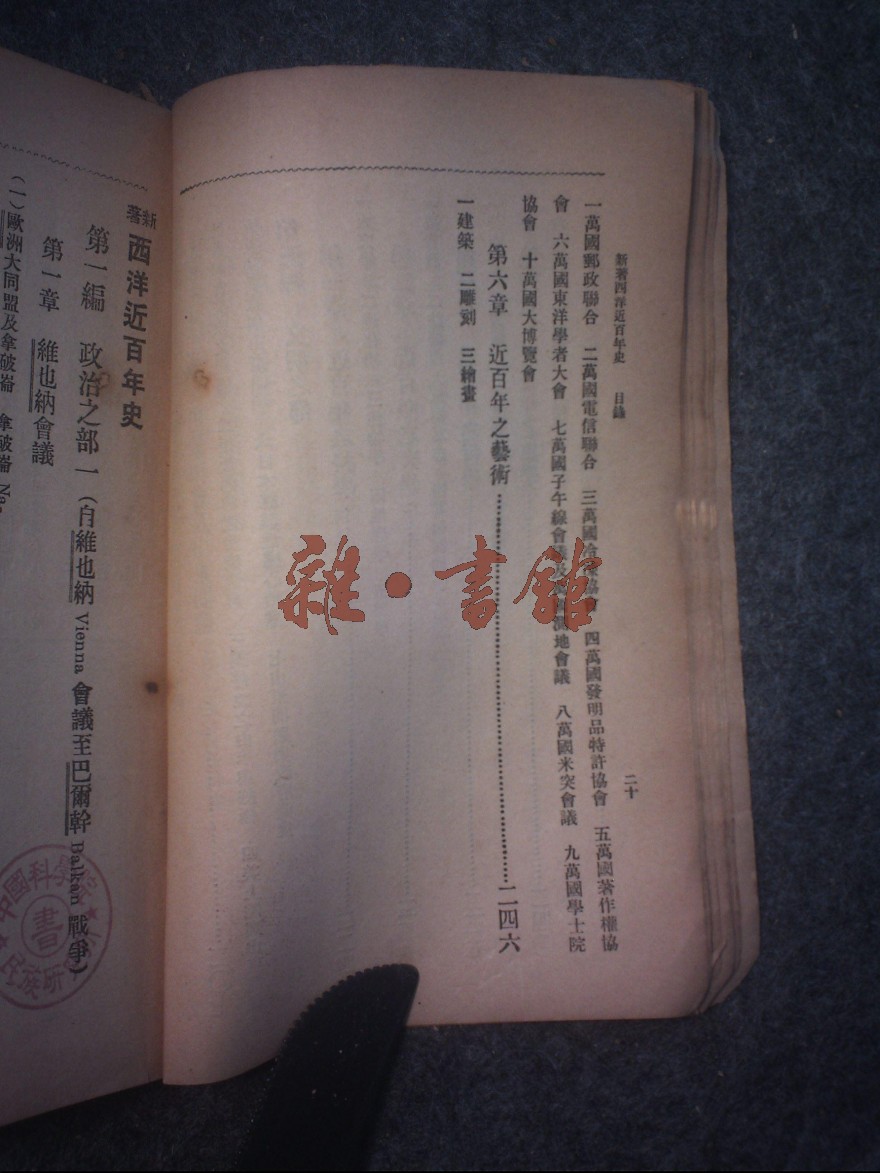 新著西洋近百年史 目錄 二十
一萬國郵政聯合 二萬國電信聯合 三萬國 協會 四萬國發明品特許協會 五萬國著作權協
會 六萬國東洋學者大會 七萬國子午線會議及 測地會議 八萬國米突會議 九萬國學士院
協會 十萬國大博覽會
第六章 近百年之藝術 二四六
一建築 二雕刻 三繪畫
新著 西洋近百年史
第一編 政治之部一(自維也納 Vienna 會議至巴爾幹 Balkan 戰爭)
第一章 維也納會議
(一)歐洲大同盟及拿破崙 拿破崙
雜·書館
中國科學院
書
民族研